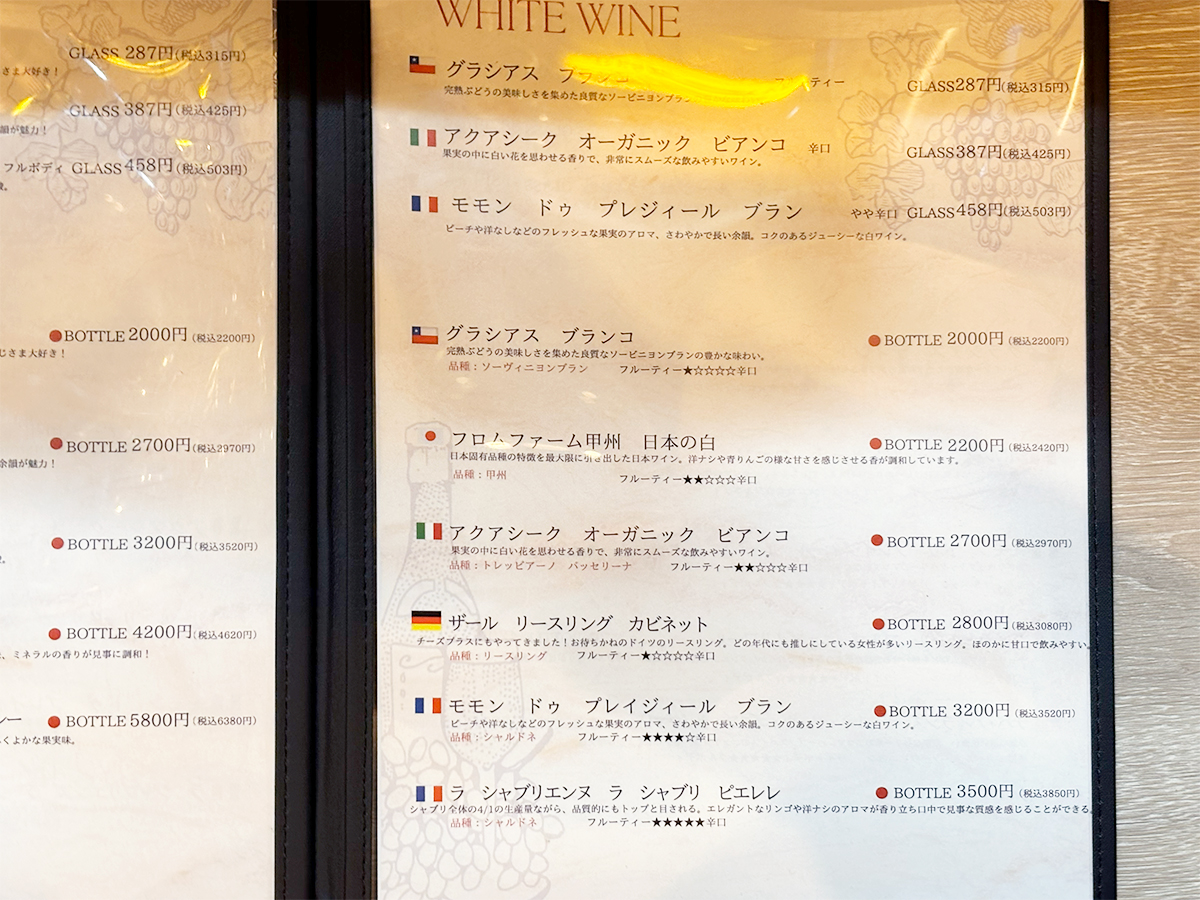 GLASS 287円(税込315円)
さま大好き！
GLASS 387円(税込425円)
韻が魅力！
フルボディ GLASS 458円(税込503円)
BOTTLE 2000円(税込2200円)
じさま大好き！
BOTTLE 2700円(税込2970円)
余韻が魅力！
BOTTLE 3200円(税込3520円)
BOTTLE 4200円(税込4620円)
、ミネラルの香りが見事に調和！
シー BOTTLE 5800円(税込6380円)
くよかな果実味。
WHITE WINE
グラシアス ブランコ フルーティー GLASS287円(税込315円)
完熟ぶどうの美味しさを集めた良質なソービニヨンブラン
アクアシーク オーガニック ビアンコ 辛口 GLASS387円(税込425円)
果実の中に白い花を思わせる香りで、非常にスムーズな飲みやすいワイン。
モモン ドゥ プレジィール ブラン やや辛口 GLASS458円(税込503円)
ピーチや洋なしなどのフレッシュな果実のアロマ、さわやかで長い余韻。コクのあるジューシーな白ワイン。
グラシアス ブランコ BOTTLE 2000円(税込2200円)
完熟ぶどうの美味しさを集めた良質なソービニヨンブランの豊かな味わい。
品種：ソーヴィニヨンブラン フルーティー★☆☆☆☆辛口
フロムファーム甲州 日本の白 BOTTLE 2200円(税込2420円)
日本固有品種の特徴を最大限に引き出した日本ワイン。洋ナシや青りんごの様な甘さを感じさせる香が調和しています。
品種：甲州 フルーティー★★☆☆☆辛口
アクアシーク オーガニック ビアンコ BOTTLE 2700円(税込2970円)
果実の中に白い花を思わせる香りで、非常にスムーズな飲みやすいワイン。
品種：トレッピアーノ パッセリーナ フルーティー★★☆☆☆辛口
ザール リースリング カビネット BOTTLE 2800円(税込3080円)
チーズプラスにもやってきました！お待ちかねのドイツのリースリング。どの年代にも推しにしている女性が多いリースリング。ほのかに甘口で飲みやすい。
品種：リースリング フルーティー★☆☆☆☆辛口
モモン ドゥ プレイジィール ブラン BOTTLE 3200円(税込3520円)
ピーチや洋なしなどのフレッシュな果実のアロマ、さわやかで長い余韻。コクのあるジューシーな白ワイン。
品種：シャルドネ フルーティー★★★★☆辛口
ラ シャブリエンヌ ラ シャブリ ピエレレ BOTTLE 3500円(税込3850円)
シャブリ全体の4/1の生産量ながら、品質的にもトップと目される。エレガントなリンゴや洋ナシのアロマが香り立ち口中で見事な質感を感じることができる。
品種：シャルドネ フルーティー★★★★★辛口